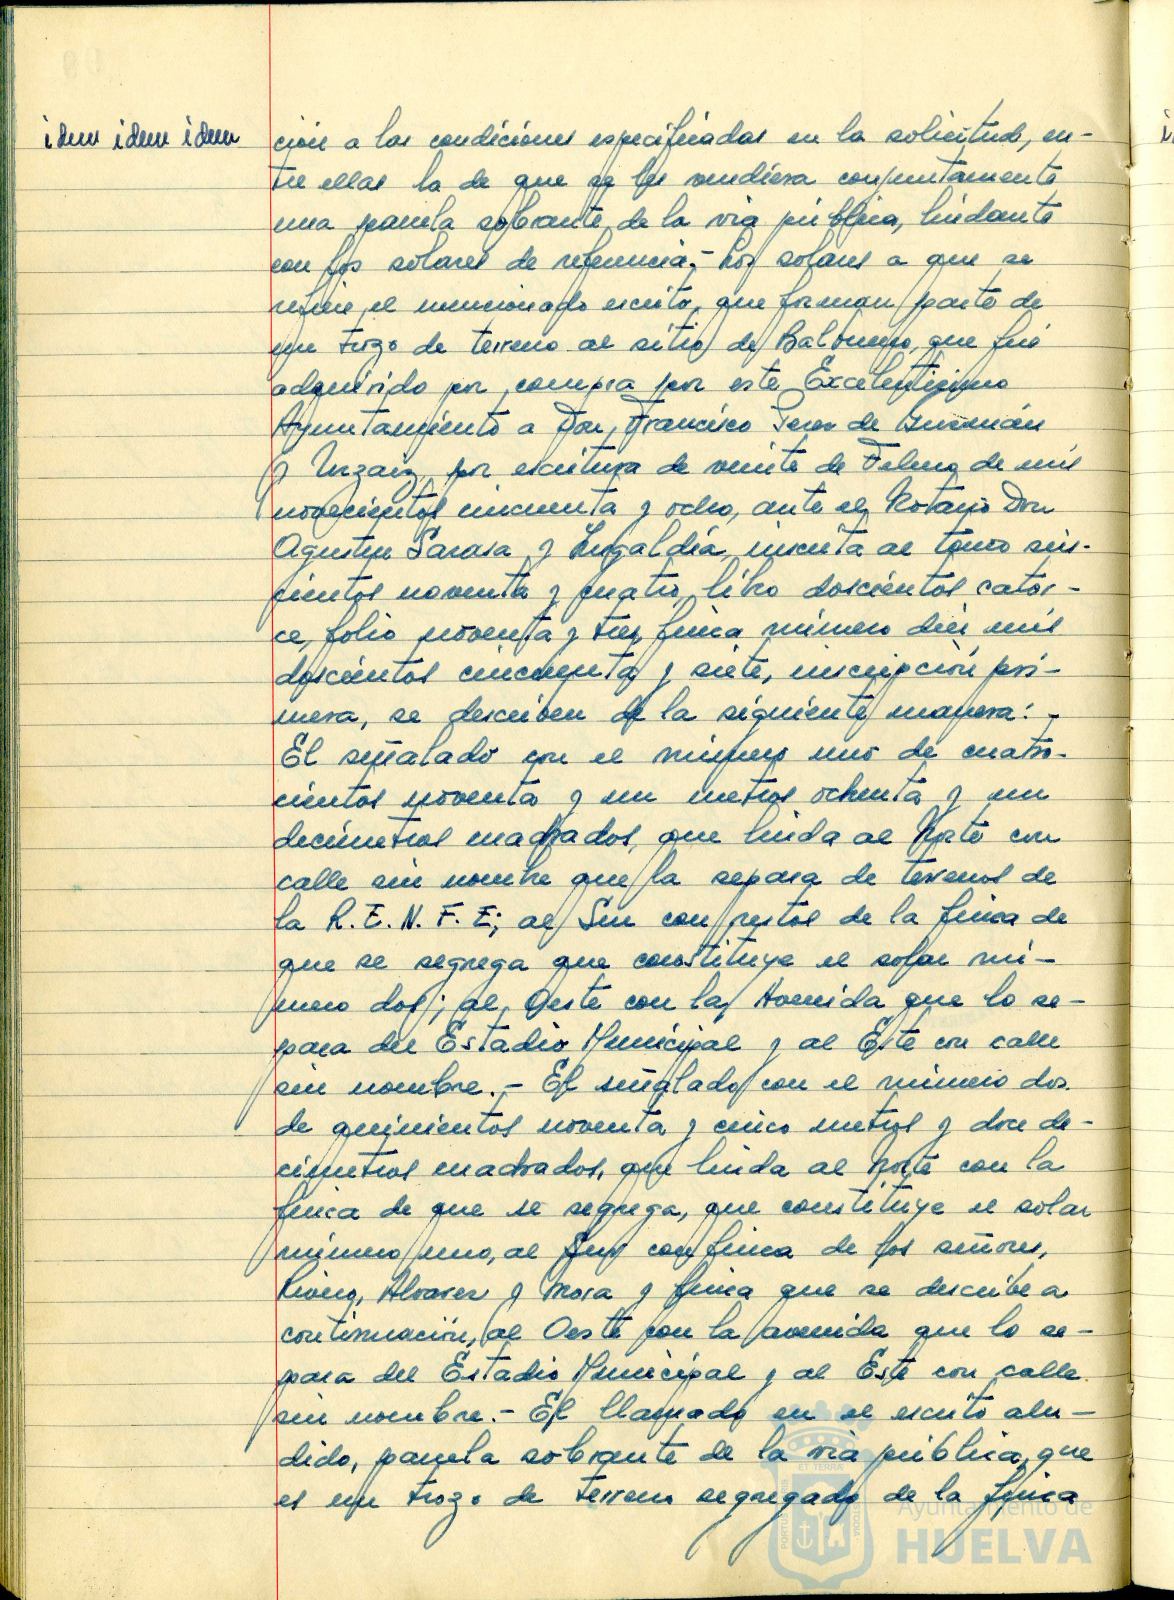 idem idem idem
ción a las condiciones especificadas en la solicitud, en-
tre ellas la de que se les vendiera conjuntamente
una parcela sobrante de la via pública, lindante
con los solares de referencia.- Los solares a que se
refiere el mencionado escrito, que forman parte de
un trozo de terreno al sitio de Balbueno, que fué
adquirido por compra por este Excelentisimo
Ayuntamiento a Don Francisco Perez de Guzmán
y Urzaiz, por escritura de veinte de Febrero de mil
novecientos cincuenta y ocho, ante el Notario Don
Agustin Sarasa y Zugaldía, inscrita al tomo seis-
cientos noventa y cuatro, libro doscientos cator-
ce, folio noventa y tres, finca número diez mil
doscientos cincuenta y siete, inscripción pri-
mera, se describen de la siguiente manera: -
El señalado con el número uno de cuatro-
cientos noventa y un metros ochenta y un
decímetros cuadrados, que linda al Norte con
calle sin nombre que la separa de terrenos de
la R.E.N.F.E; al Sur con restos de la finca de
que se segrega que constituye el solar nú-
mero dos; al Oeste con la Avenida que lo se-
para del Estadio Municipal y al Este con calle
sin nombre.- El señalado con el número dos
de quinientos noventa y cinco metros y doce de-
cimetros cuadrados, que linda al Norte con la
finca de que se segrega, que constituye el solar
número uno, al Sur con finca de los señores,
Rivero, Alvarez y Mora y finca que se describe a
continuación, al Oeste con la avenida que lo se-
para del Estadio Municipal y al Este con calle
sin nombre.- El llamado en el escrito alu-
dido, parcela sobrante de la via pública, que
es un trozo de terreno segregado de la finca
Ayuntamiento de
HUELVA